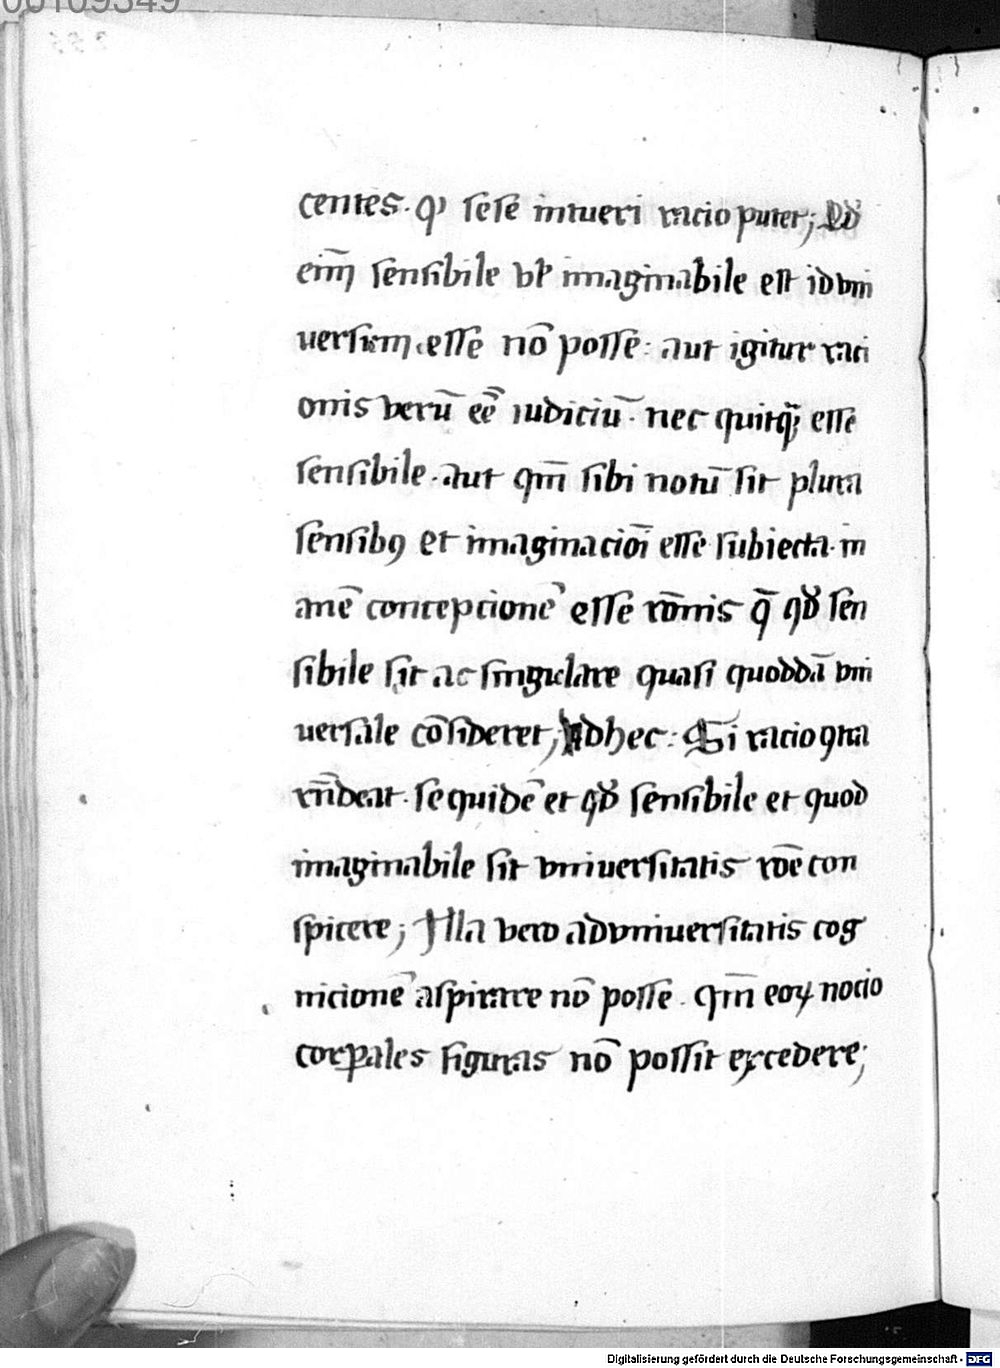 00109349
centes. qɔ sese intueri racio putet; Qđ
eni̅m sensibile vł imaginabile est id vni
uersum esse no̅ posse: aut igitur raci
onis veru̅ ee̅ iudiciu̅. nec quitq̅ȝ esse
sensibile. aut qm̅ sibi notu̅ sit plura
sensibꝰ et imaginacio̅i esse subiecta. in
ane̅ concepcione̅ esse ro̅nis q̅ qđ sen
sibile sit ac singulare quasi quodda̅ vni
uersale co̅sideret; Ad hec: Si racio ꝯtra
rn̅deat. se quide̅ et qđ sensibile et quod
imaginabile sit vniuersitatis ro̅e con
spicere; Illa vero ad vniuersitatis cog
nicione̅ aspirare no̅ posse. qm̅ eoꝝ nocio
corꝑales figuras no̅ possit excedere;
Digitalisierung gefördert durch die Deutsche Forschungsgemeinschaft - DFG